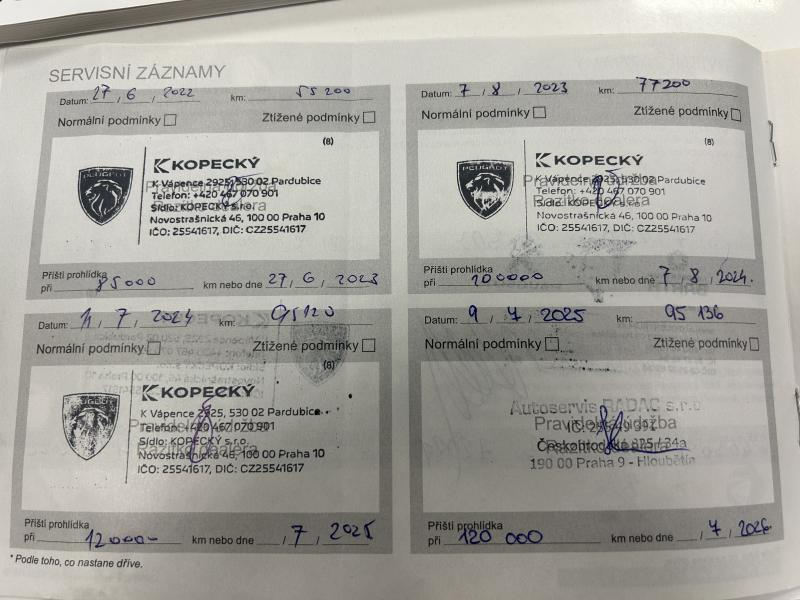 SERVISNÍ ZÁZNAMY
Datum: 27 / 6 / 2022 km: 55 200
Normální podmínky Ztížené podmínky
(8)
PEUGEOT
KOPECKÝ
K Vápence 2925, 530 02 Pardubice
Telefon: +420 467 070 901
Sídlo: KOPECKÝ s.r.o.
Novostrašnická 46, 100 00 Praha 10
IČO: 25541617, DIČ: CZ25541617
Pravidelná údržba
Razítko dealera
Příští prohlídka
při 85000 km nebo dne 27 / 6 / 2023
Datum: 7 / 8 / 2023 km: 77200
Normální podmínky Ztížené podmínky
(8)
PEUGEOT
KOPECKÝ
K Vápence 2925, 530 02 Pardubice
Telefon: +420 467 070 901
Sídlo: KOPECKÝ s.r.o.
Novostrašnická 46, 100 00 Praha 10
IČO: 25541617, DIČ: CZ25541617
Pravidelná údržba
Razítko dealera
Příští prohlídka
při 100000 km nebo dne 7 / 8 / 2024.
Datum: 11 / 7 / 2024 km:
Normální podmínky Ztížené podmínky
(8)
PEUGEOT
KOPECKÝ
K Vápence 2925, 530 02 Pardubice
Telefon: +420 467 070 901
Sídlo: KOPECKÝ s.r.o.
Novostrašnická 46, 100 00 Praha 10
IČO: 25541617, DIČ: CZ25541617
Pravidelná údržba
Razítko dealera
Příští prohlídka
při km nebo dne / 7 / 2025
Datum: 9 / 7 / 2025 km: 95 136
Normální podmínky Ztížené podmínky
Autoservis RADAC s.r.o.
Pravidelná údržba
IČ:
Českobrodská 825/34a
Razítko dealera
190 00 Praha 9 - Hloubětín
Příští prohlídka
při 120 000 km nebo dne / 7 / 2026.
* Podle toho, co nastane dříve.